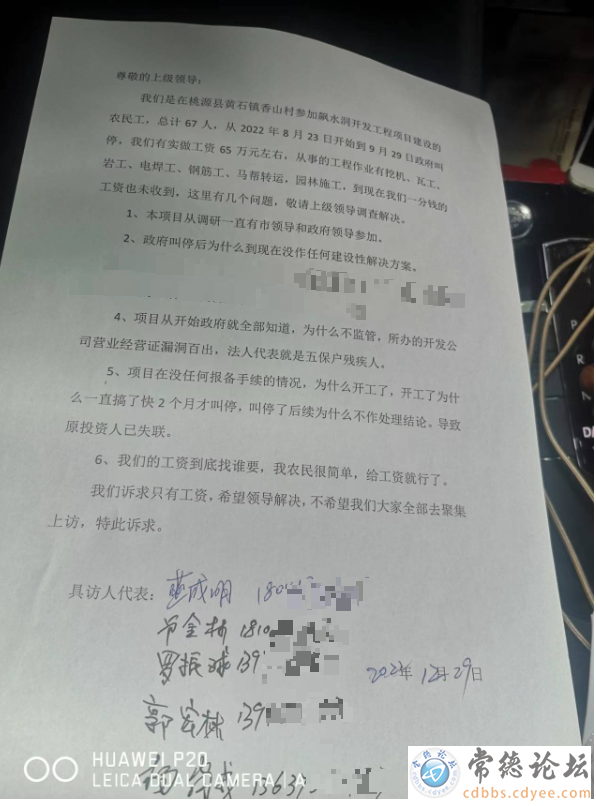 尊敬的上级领导：
我们是在桃源县黄石镇香山村参加飙水洞开发工程项目建设的
农民工，总计 67 人，从 2022 年 8 月 23 日开始到 9 月 29 日政府叫
停，我们有实做工资 65 万元左右，从事的工程作业有挖机、瓦工、
岩工、电焊工、钢筋工、马帮转运，园林施工，到现在我们一分钱的
工资也未收到，这里有几个问题，敬请上级领导调查解决。
1、本项目从调研一直有市领导和政府领导参加。
2、政府叫停后为什么到现在没作任何建设性解决方案。
4、项目从开始政府就全部知道，为什么不监管，所办的开发公
司营业经营证漏洞百出，法人代表就是五保户残疾人。
5、项目在没任何报备手续的情况，为什么开工了，开工了为什
么一直搞了快 2 个月才叫停，叫停了后续为什么不作处理结论。导致
原投资人已失联。
6、我们的工资到底找谁要，我农民很简单，给工资就行了。
我们诉求只有工资，希望领导解决，不希望我们大家全部去聚集
上访，特此诉求。
具访人代表：成明 180
金 1810
罗振球 139
2022年 12月29日
郭宏林 139
1363
HUAWEI P20
LEICA DUAL CAMERA | A
常德论坛
cdbbs.cdyee.com